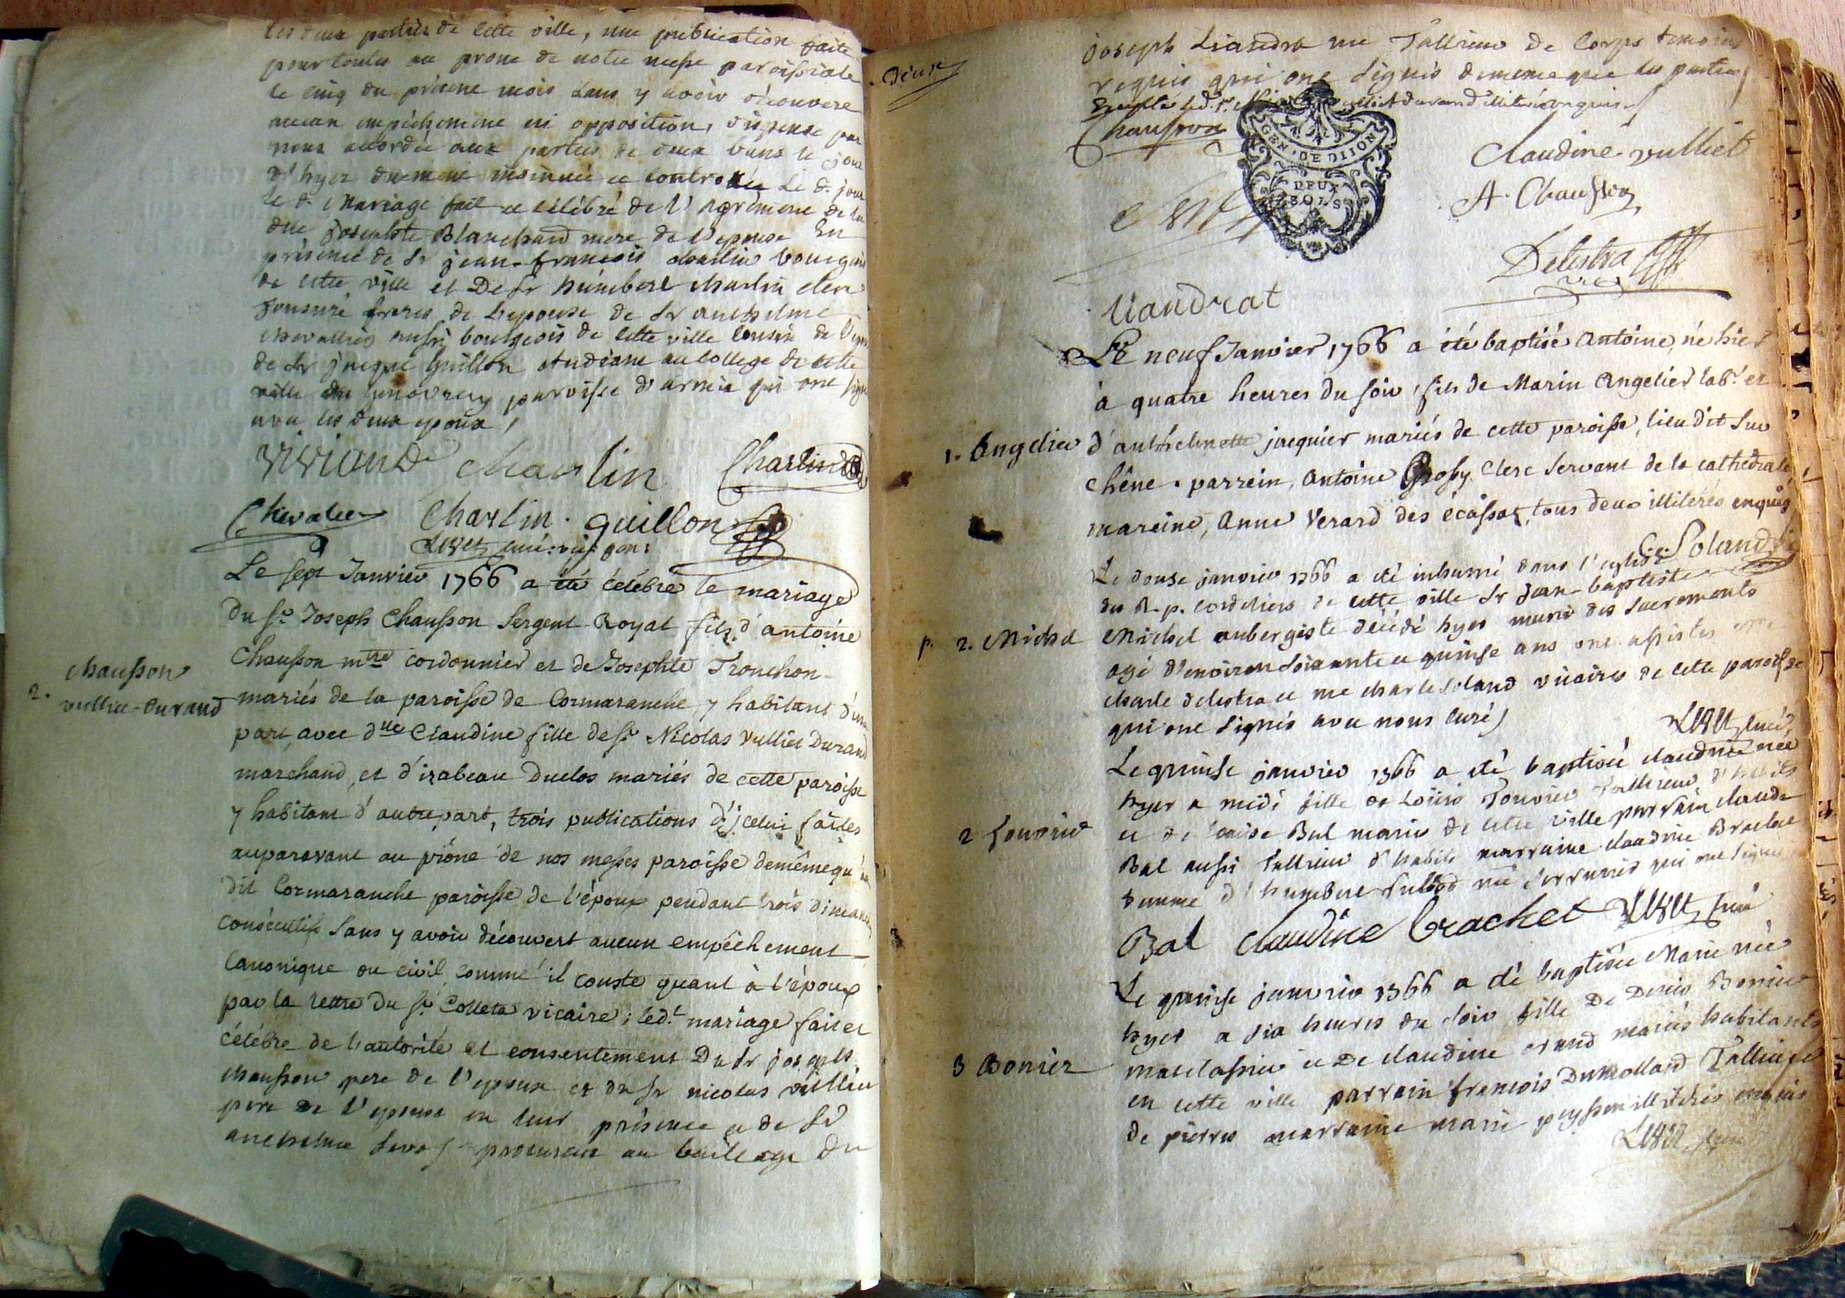 les deux parties de cette ville, une publication faite
pour toutes au prone de notre messe paroissiale
le cinq du présent mois sans y avoir découvert
aucun empéchement ni opposition, dispense par
nous accordée aux parties de deux bans le jour
d'hyer duement insinuée et controllée le d. jour
le d. mariage fait et célébré de l'agrément de
dlle josephte Blanchard mere de l'epouse En
présence de Sr jean-françois charlin bourgeois
de cette ville et De Sr humbert charlin clerc
tonsuré freres de l'epouse de Sr anthelme
chevallier aussi bourgeois de cette ville cousin de
de Sr jacque Guillon etudiant au college de cette
ville paroisse d'armix qui ont signé
avec les deux epoux
Viviand charlin Charlin
Chevalier Charlin guillon
curé
Le sept Janvier 1766 a été célébré le mariage
du Sr Joseph Chausson Sergent Royal fils d'antoine
Chausson mtre cordonnier et de Josephte Tronchon
mariés de la paroisse de Cormaranche y habitant d'une
part, avec dlle Claudine fille de Sr Nicolas Vulliet Durand
marchand, et d'izabeau Duclos mariés de cette paroisse
y habitant d'autre part, trois publications d'jcelui faites
auparavant au prône de nos messes paroisse demême qu'au
dit Cormaranche paroisse de l'époux pendant trois dimanches
consécutifs sans y avoir découvert aucun empêchement
Canonique ou civil comme il conste quant à l'époux
par la lettre du Sr Colleta vicaire; led.t mariage fait et
célébré de l'autorité et consentement Du Sr joseph
chausson pere de l'epoux et du Sr nicolas vulliet
pere de l'epouse en leur présence et de Sr
anthelme procureur au bailliage du
chausson
2. vulliet-Durand
Deux
joseph Liandra me Tallieur de Corps temoins
requis qui ont Signés de meme que les parties
Chausson
GEN. DE DIJON
DEUX
SOLS
Claudine vulliet
A. Chausson
Delestra
vic
Vandrat
Le neuf Janvier 1766 a été baptisé Antoine, né hier
à quatre heures du soir, fils de Marin Angelier labr et
1. Angelier d'anthelmette jacquier mariés de cette paroisse, lieu dit sur
chêne. parrein, Antoine Groby Clerc Servant de la cathédrale
mareine, Anne Verard des écassaz, tous deux illiterés enquis
Soland
Le douse janvier 1766 a été inhumé dans l'eglise
des R.p. cordeliers de cette ville Sr jean-baptiste
p. 2. Michel Michel aubergiste décédé hyer munis des Sacrements
agé d'environ soixante et quinse ans ont assistés
charle delestra et me charle Soland vicaires de cette paroisse
qui ont Signés avec nous curé
curé
Le quinse janvier 1766 a été baptisée claudine née
hyer a midi fille de Loüis Touvier Tallieur d'habits
2 Touvier et de louise Bal mariés de cette ville parrain claude
Bal aussi Tallieur d'habits marraine claudine Brachet
femme d'humbert me Serrurier qui ont Signé
Bal claudine brachet curé
Le quinse janvier 1766 a été baptisée Marie née
hyer a six heures du soir fille De Denis Bonier
3 Bonier matelassier et De claudine mariés habitants
en cette ville parrain françois Dumollard Tallieur
de pierres marraine marie peysson illitérés enquis
curé